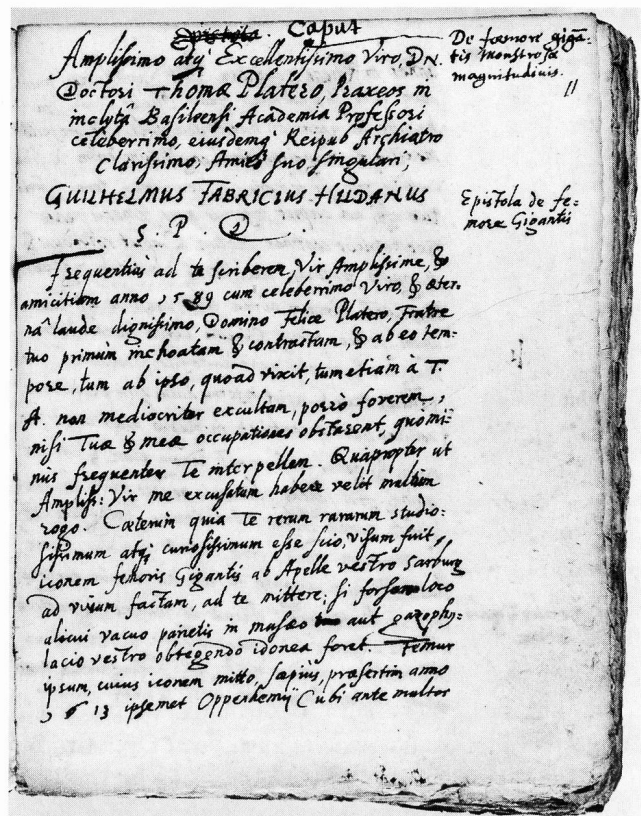 Epistola. Caput
Amplissimo atq; Excellentissimo Viro, DN.
Doctori Thomæ Platero, Praxeos in
inclytâ Basileensi Academia Professori
celeberrimo, eiusdemq; Reipub Archiatro
Clarissimo, Amico suo singulari,
GUILHELMUS FABRICIUS HILDANUS
S. P. D
De fœmore gigā=
tis monstrosæ
magnitudinis.
11
Epistola de fe=
more Gigantis
Frequentius ad te scriberem, Vir Amplissime, &
amicitiam anno 1589 cum celeberrimo Viro, & æter-
nâ laude dignissimo, Domino Felice Platero, Fratre
tuo primùm inchoatam & contractam, & ab eo tem-
pore, tum ab ipso, quoad vixit, tum etiam à T.
A. non mediocriter excultam, porrò foverem,
nisi Tuæ & meæ occupationes obstarent, quomi-
nus frequenter Te interpellem. Quapropter ut
Ampliss: Vir me excusatum habere velit multum
rogo. Cæterùm quia Te rerum rararum studio-
sissimum atq; curiosissimum esse scio, visum fuit,
iconem femoris Gigantis ab Apelle vestro Sarburg
ad vivum factam, ad te mittere; si forsan loco
alicui vacuo parietis in musæo aut gazophy=
lacio vestro obtegendo idonea foret. Femur
ipsum, cuius iconem mitto, sæpius, præsertim anno
1613 ipsemet Oppenhemij Cubi ante multos